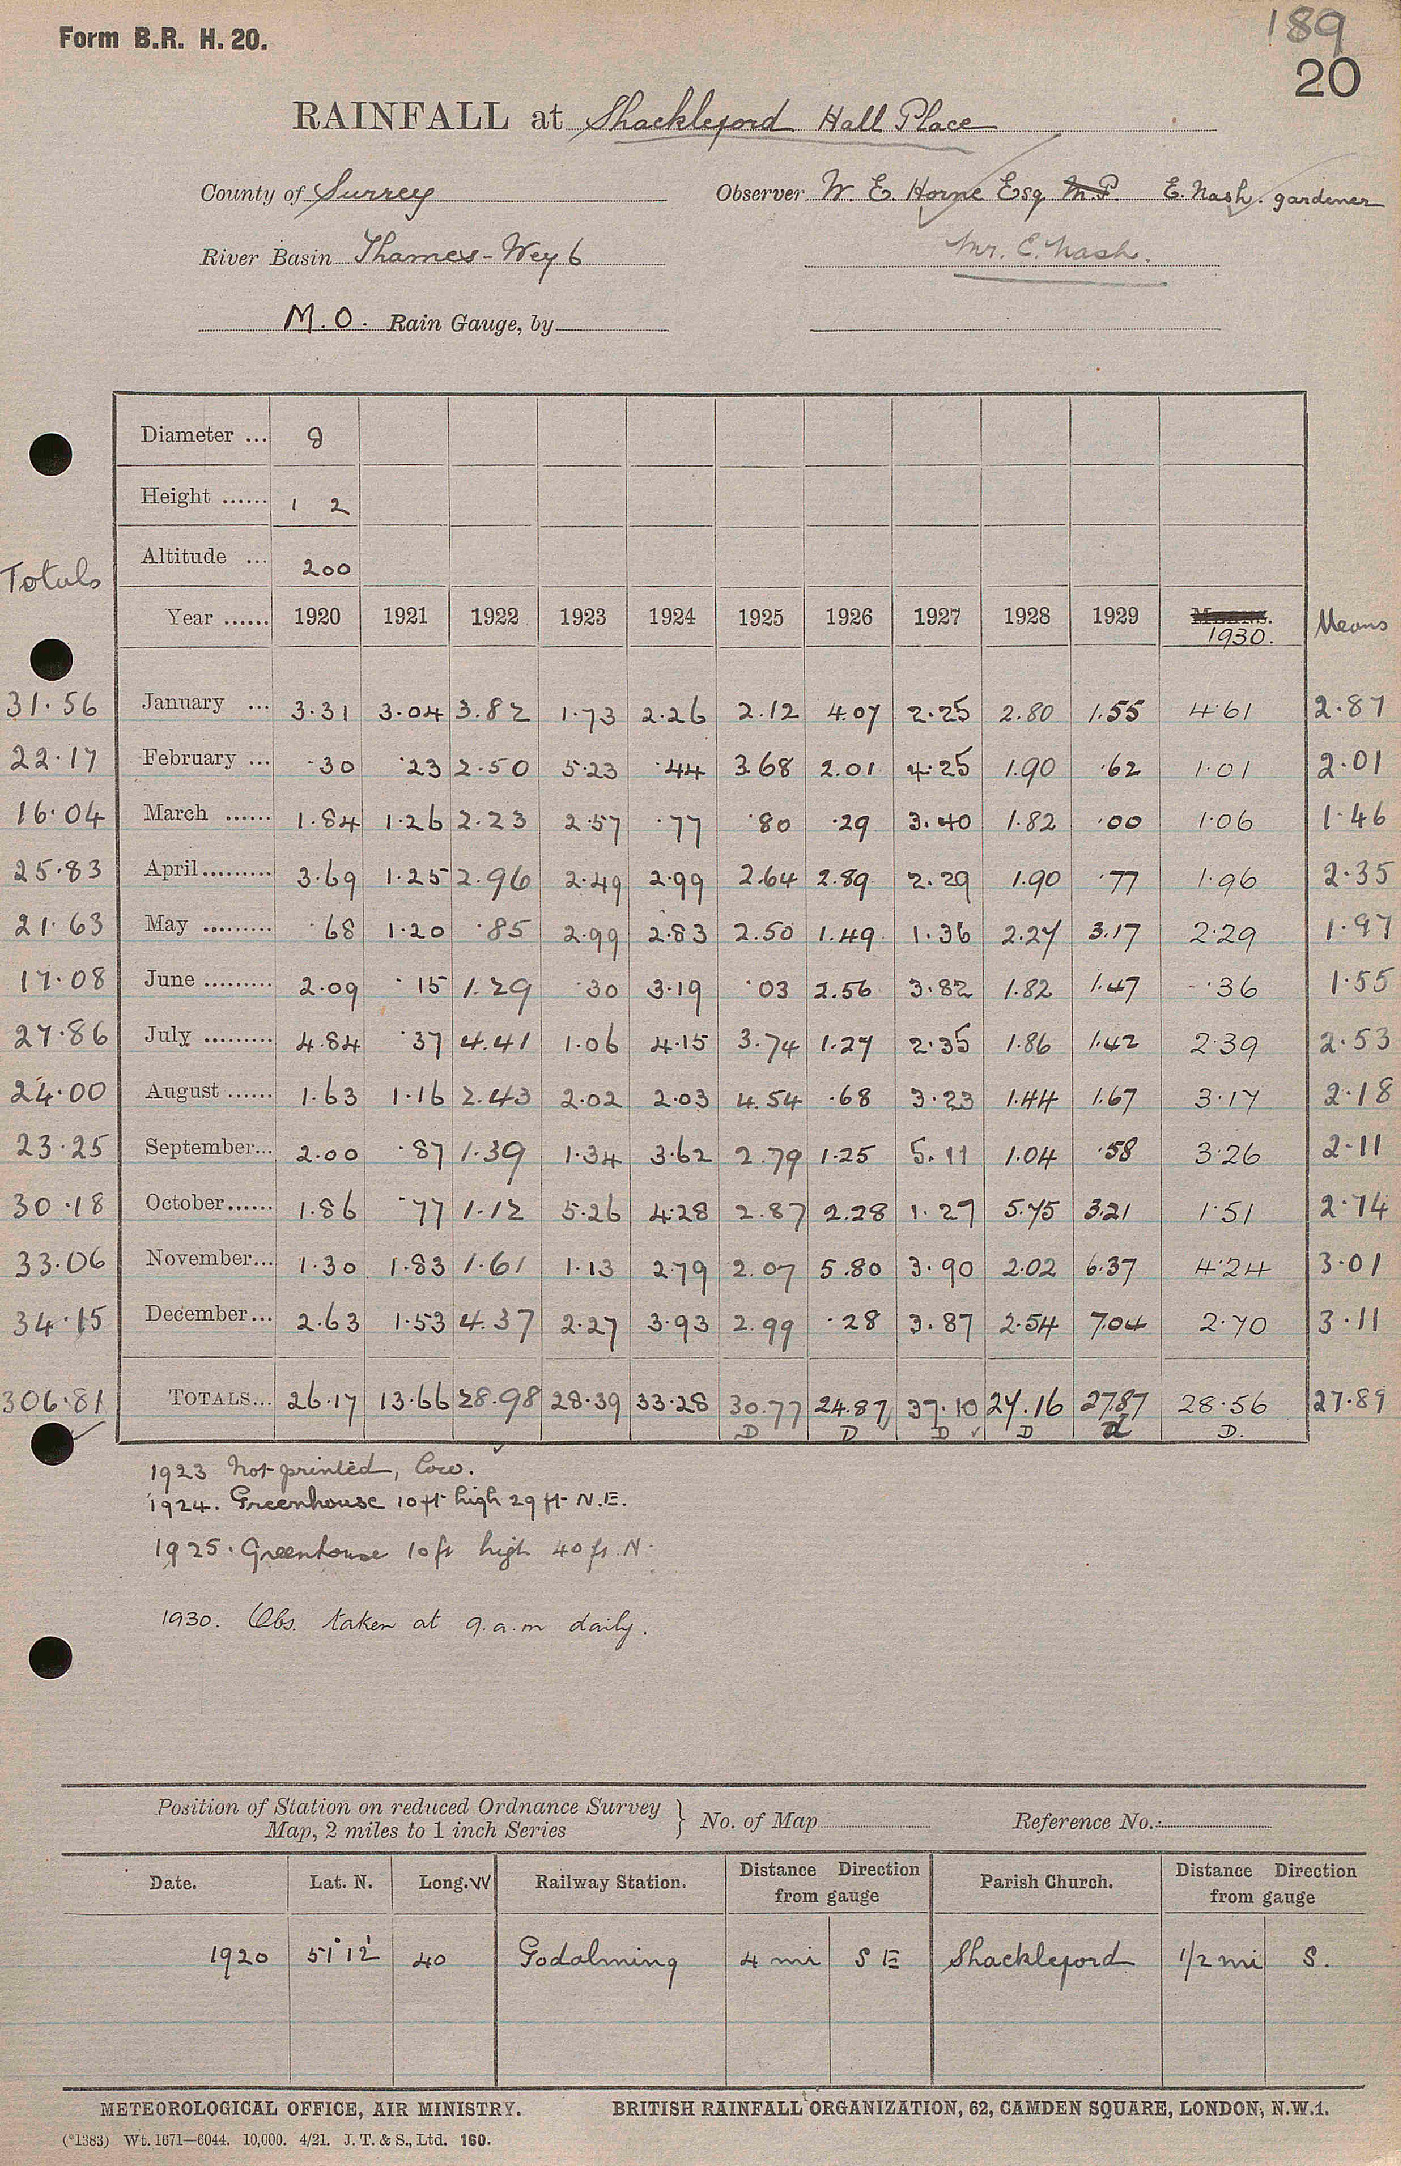 Form B.R. H. 20.
189
20
RAINFALL at Shackleford Hall Place
County of Surrey Observer W. E. Horne Esq M.P. E. Nash. gardener
River Basin Thames-Wey 6 Mr. E. Nash.
M.O. Rain Gauge, by
Diameter ... 8
Height ...... 1 2
Altitude ... 200
Totals
Year ...... 1920 1921 1922 1923 1924 1925 1926 1927 1928 1929 Means. 1930. Means
31.56 January ... 3.31 3.04 3.82 1.73 2.26 2.12 4.07 2.25 2.80 1.55 4.61 2.87
22.17 February ... .30 .23 2.50 5.23 .44 3.68 2.01 4.25 1.90 .62 1.01 2.01
16.04 March ...... 1.84 1.26 2.23 2.57 .77 .80 .29 3.40 1.82 .00 1.06 1.46
25.83 April......... 3.69 1.25 2.96 2.49 2.99 2.64 2.89 2.29 1.90 .77 1.96 2.35
21.63 May ......... .68 1.20 .85 2.99 2.83 2.50 1.49 1.36 2.27 3.17 2.29 1.97
17.08 June ......... 2.09 .15 1.29 .30 3.19 .03 2.56 3.82 1.82 1.47 .36 1.55
27.86 July ......... 4.84 .37 4.41 1.06 4.15 3.74 1.27 2.35 1.86 1.42 2.39 2.53
24.00 August ...... 1.63 1.16 2.43 2.02 2.03 4.54 .68 3.23 1.44 1.67 3.17 2.18
23.25 September... 2.00 .87 1.39 1.34 3.62 2.79 1.25 5.11 1.04 .58 3.26 2.11
30.18 October...... 1.86 .77 1.12 5.26 4.28 2.87 2.28 1.27 5.75 3.21 1.51 2.74
33.06 November... 1.30 1.83 1.61 1.13 2.79 2.07 5.80 3.90 2.02 6.37 4.24 3.01
34.15 December... 2.63 1.53 4.37 2.27 3.93 2.99 .28 3.87 2.54 7.04 2.70 3.11
306.81 TOTALS... 26.17 13.66 28.98 28.39 33.28 30.77 24.87 37.10 27.16 27.87 28.56 27.89
D D D D d D.
1923 Not printed, low.
1924. Greenhouse 10 ft high 29 ft N.E.
1925. Greenhouse 10 ft high 40 ft. N.
1930. Obs. taken at 9.a.m daily.
Position of Station on reduced Ordnance Survey
Map, 2 miles to 1 inch Series } No. of Map Reference No.
Date. Lat. N. Long. W Railway Station. Distance Direction from gauge Parish Church. Distance Direction from gauge
1920 51° 12' 40 Godalming 4 mi S E Shackleford 1/2 mi S.
METEOROLOGICAL OFFICE, AIR MINISTRY. BRITISH RAINFALL ORGANIZATION, 62, CAMDEN SQUARE, LONDON, N.W.1.
(*1383) Wt. 1671—6044. 10,000. 4/21. J. T. & S., Ltd. 160.